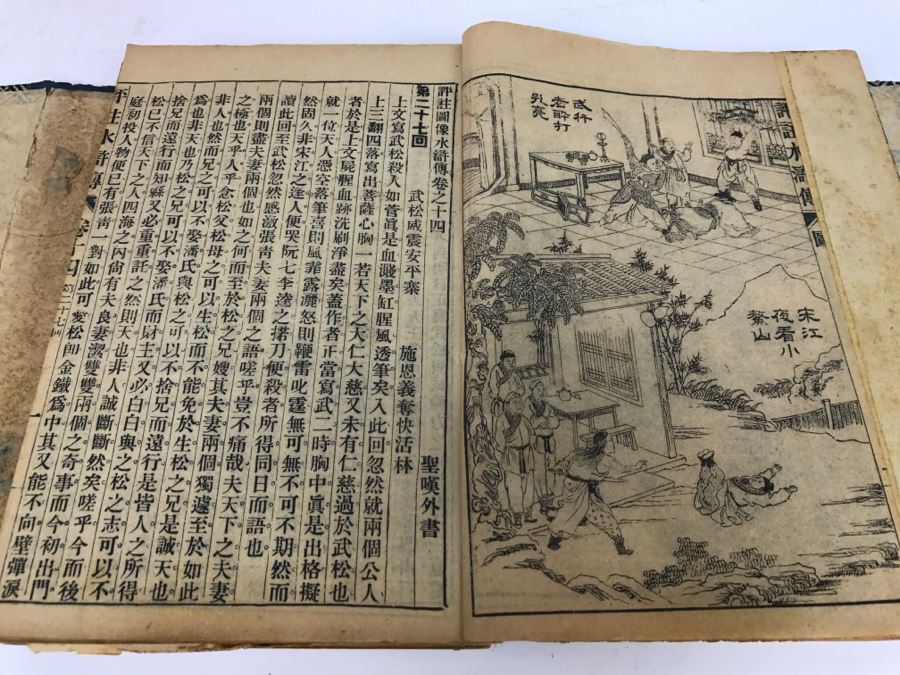 武行
者醉打
孔亮
宋江
夜看小
鰲山
評註水滸傳 圖
評註圖像水滸傳卷之十四 聖嘆外書
第二十七回 武松威震安平寨 施恩義奪快活林
上文寫武松殺人如菅眞是血濺墨缸腥風透筆矣入此回忽然就兩個公人
上三翻四落寫出菩薩心胸一若天下之大仁大慈又未有仁慈過於武松也
者於是上文屍腥血跡洗刷淨盡矣蓋作者正當寫武二時胸中眞是出格擬
就一位天人憑空落筆喜則風霏露灑怒則鞭雷叱霆無可無不可不期然而
然固久非宋江之逢人便哭阮七李逵之掿刀便殺者所得同日而語也
讀此回至武松忽然感激張青夫妻兩個之語嗟乎豈不痛哉夫天下之夫妻
兩個則盡夫妻兩個也如之何而至於松之兄嫂其夫妻兩個獨遽至於如此
之極也天乎人乎念松父松母之可以生松而不能免於生松之兄是誠天也
非人也然而兄之可以不娶潘氏與松之可以不捨兄而遠行是皆人之所得
為也非天也乃松之兄可以不娶潘氏而財主又必白白與之松之志可以不
捨兄而遠行而知縣又必重重託之然則天也非人誠斷斷然矣嗟乎今而後
松已不信天下之人四海之內尚有夫良妻潔雙雙兩個之奇事而今初出門
庭初投人物便已有張青一對如此可愛松卽金鐵為中其又能不向壁彈淚
評註水滸傳 卷十四 第二十七回 一